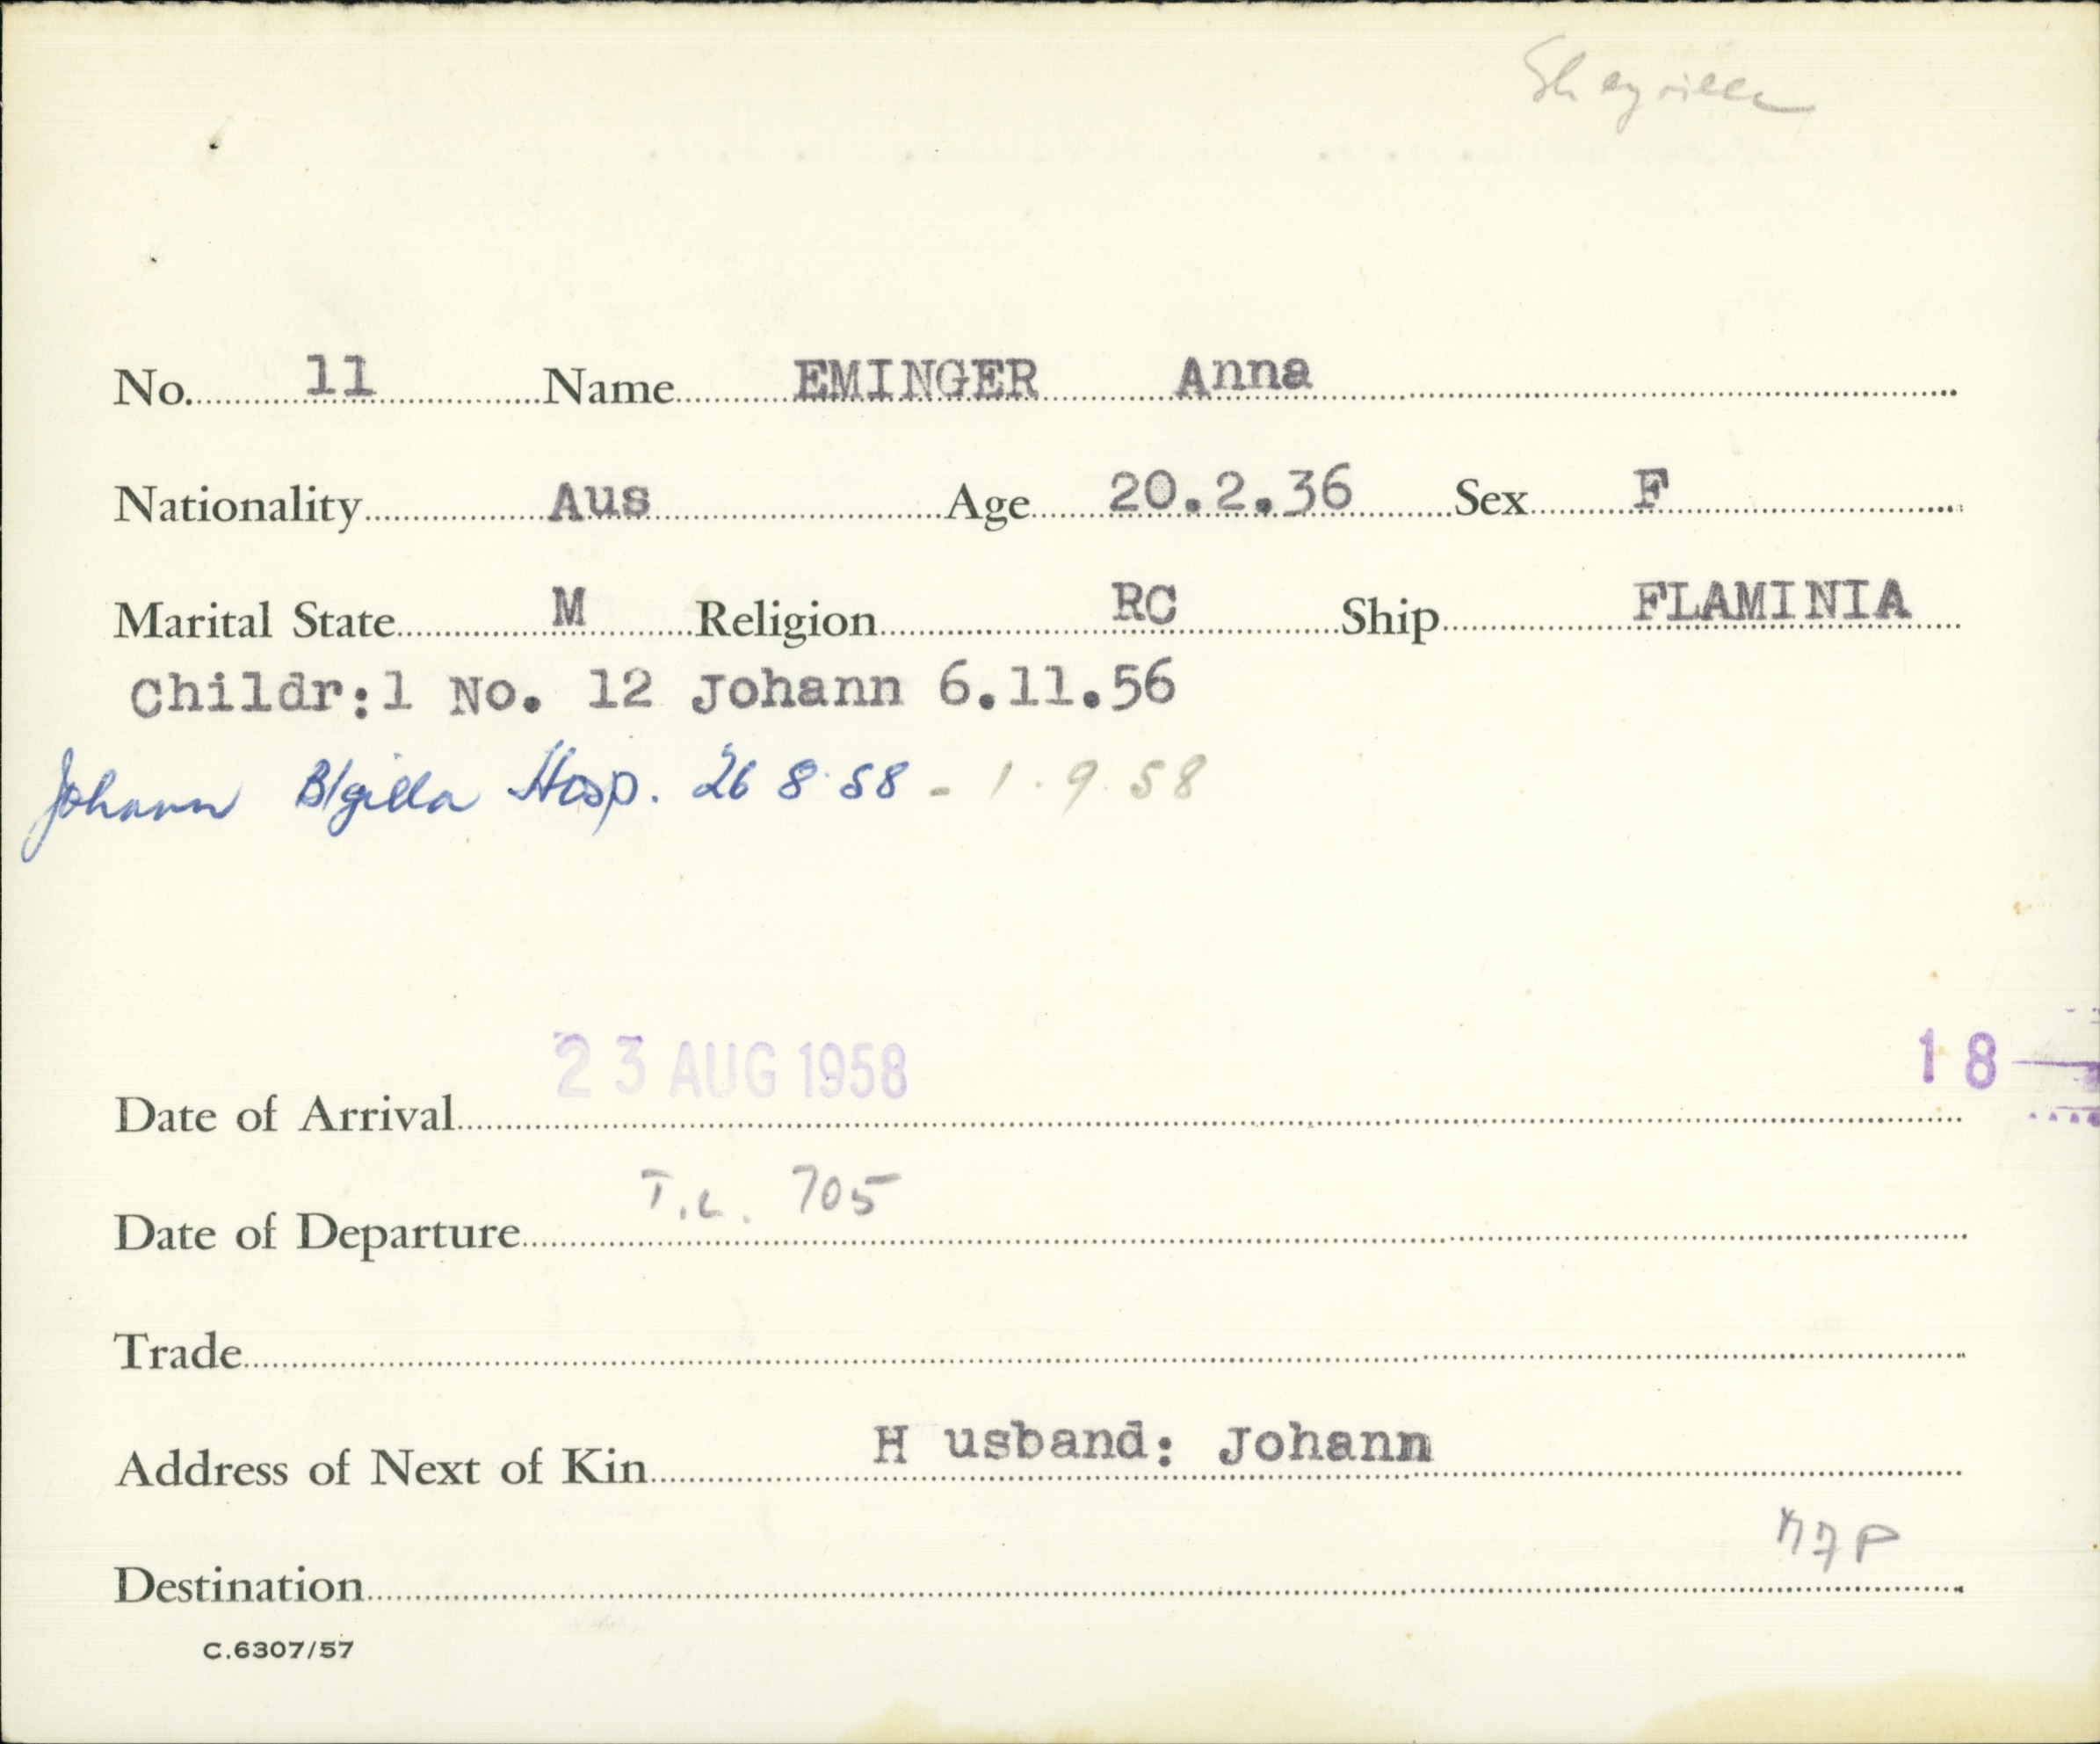 No. 11 Name EMINGER Anna
Nationality Aus Age 20.2.36 Sex F
Marital State M Religion RC Ship FLAMINIA
Childr:1 No. 12 Johann 6.11.56
Johann B/gilla Hosp. 26 8.58 - 1.9.58
23 AUG 1958 18
Date of Arrival
T.L. 705
Date of Departure
Trade
Address of Next of Kin H usband: Johann
Destination
C.6307/57